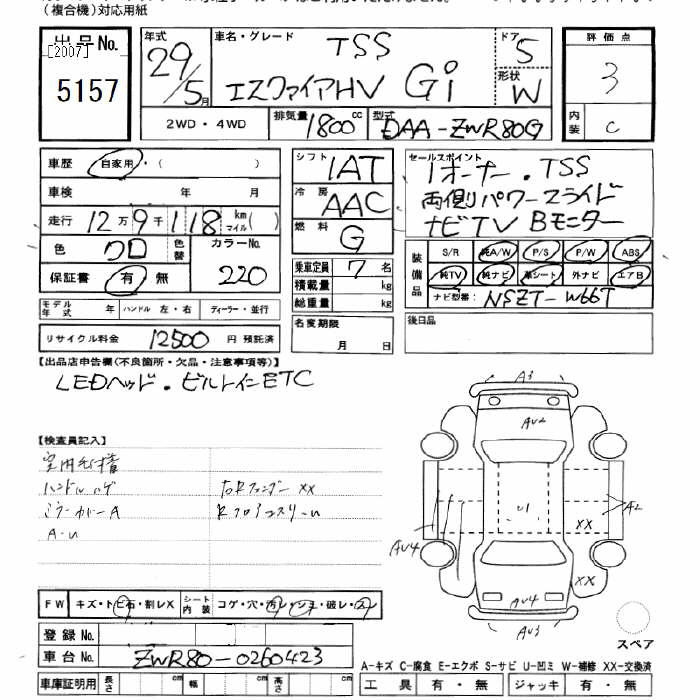 (複合機)対応用紙
出品 No.
[2007]
5157
年式
29/5月
車名・グレード
TSS
エスクァイアHV Gi
ドア
5
形状
W
評価点
3
内装
C
2WD・4WD
排気量
1800cc
型式
DAA-ZWR80G
車歴
自家用・( )
車検 年 月
走行
12万9千118km
マイル( )
色
クロ
色替
カラーNo.
220
保証書 有 無
モデル年式 年 ハンドル 左・右 ディーラー・並行
リサイクル料金 12500 円 預託済
シフト
IAT
冷房
AAC
燃料
G
乗車定員 7 名
積載量 kg
総重量 kg
名変期限
月 日
セールスポイント
1オーナー・TSS
両側パワースライド
ナビTV Bモニター
装備品
S/R 純A/W P/S P/W ABS
純TV 純ナビ 革シート 外ナビ エアB
ナビ型番: NSZT-W66T
後日品
【出品店申告欄(不良箇所・欠品・注意事項等)】
LEDヘッド・ビルトインETC
【検査員記入】
ハンドルハゲ
右Rフェンダー XX
ミラーカバーA
A・U
FW キズ・トビ石・割レX
シート内装 コゲ・穴・汚レ・シミ・破レ・スレ
登録 No.
車台 No. ZWR80-0260423
車庫証明用 長さ cm 幅 cm 高さ cm
A3
AU2
U1
A2
XX
AU4
XX
AU4
AU3
スペア
A-キズ C-腐食 E-エクボ S-サビ U-凹ミ W-補修 XX-交換済
工具 有・無 ジャッキ 有・無